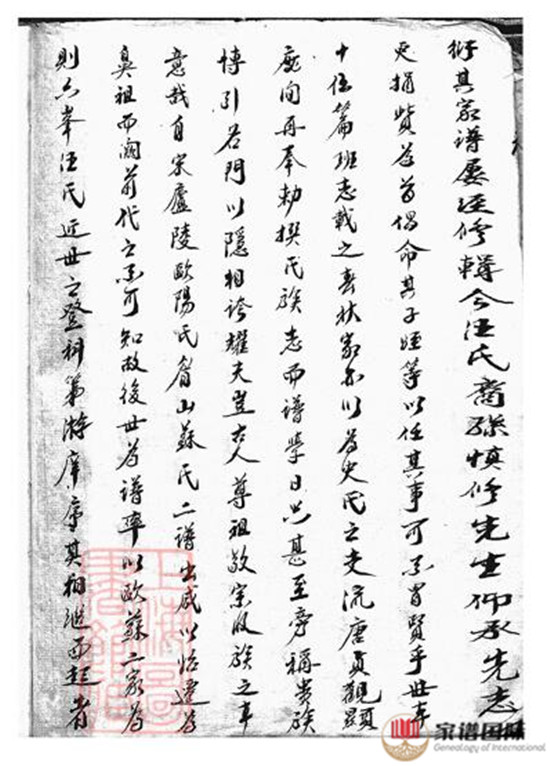 衍其家譜屢經修輯今汪氏裔孫慎修先生仰承先志
更捐貲為首倡命其子姪等以任其事可不謂賢乎世本
十伍篇班志載之春秋家亦以為史氏之支流唐貞觀顯
慶間再奉勅撰氏族志而譜學日興甚至旁稱貴族
博引名門以隱相誇耀夫豈古人尊祖敬宗收族之本
意哉自宋廬陵歐陽氏眉山蘇氏二譜出咸以始遷為
鼻祖而闕前代之不可知故後世為譜率以歐蘇二家為
則六峯汪氏近世之登科第游庠序其相繼而起者
上海圖書館
家谱国际
Genealogy of International